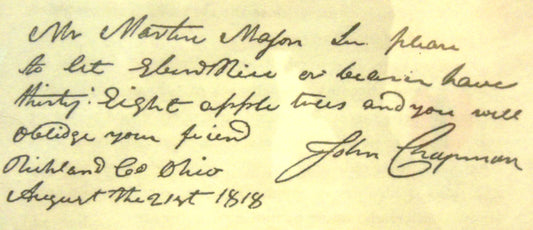 Mr Martin Mason Sir please
to let Eben Rice or bearer have
thirty-Eight apple trees and you will
oblidge your friend
John Chapman
Richland Co Ohio
August the 21st 1818